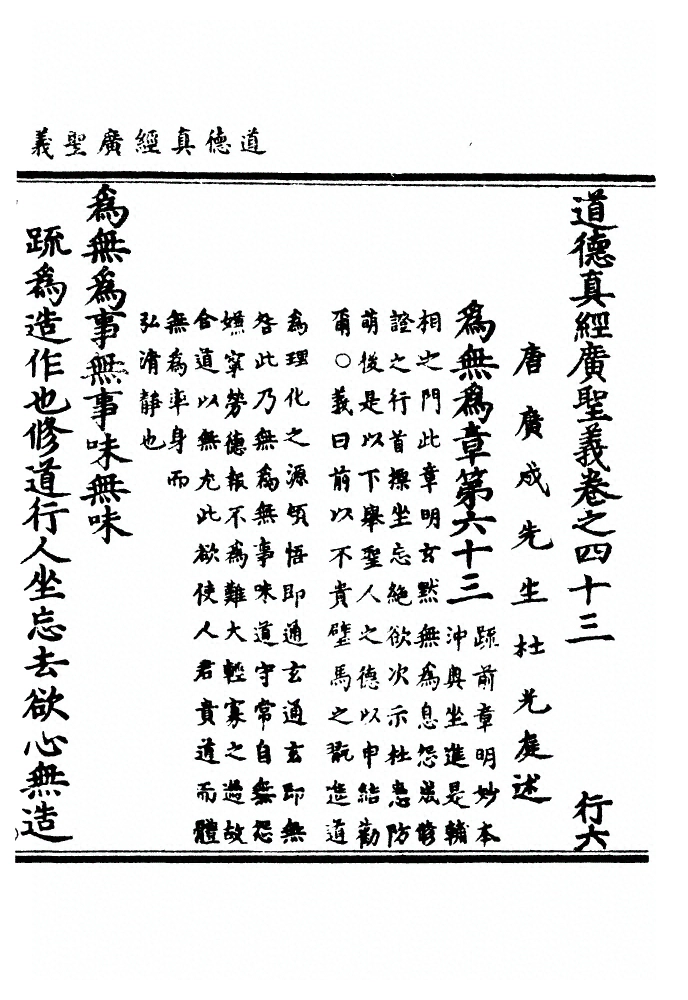 道德真經廣聖義
道德真經廣聖義卷之四十三 行六
唐廣成先生杜光庭述
爲無爲章第六十三
疏前章明妙本
沖奧坐進是輔
相之門此章明玄默無爲息怨爲修
證之行首摽坐忘絕欲次示杜患防
萌後是以下舉聖人之德以申結勸
爾○義曰前以不貴璧馬之翫進道
爲理化之源頓悟即通玄通玄即無
咎此乃無爲無事味道守常自無怨
嫌寧勞德報不爲難大輕寡之過故
合道以無尤此欲使人君貴道而體
無爲率身而
弘清靜也
爲無爲事無事味無味
疏爲造作也修道行人坐忘去欲心無造